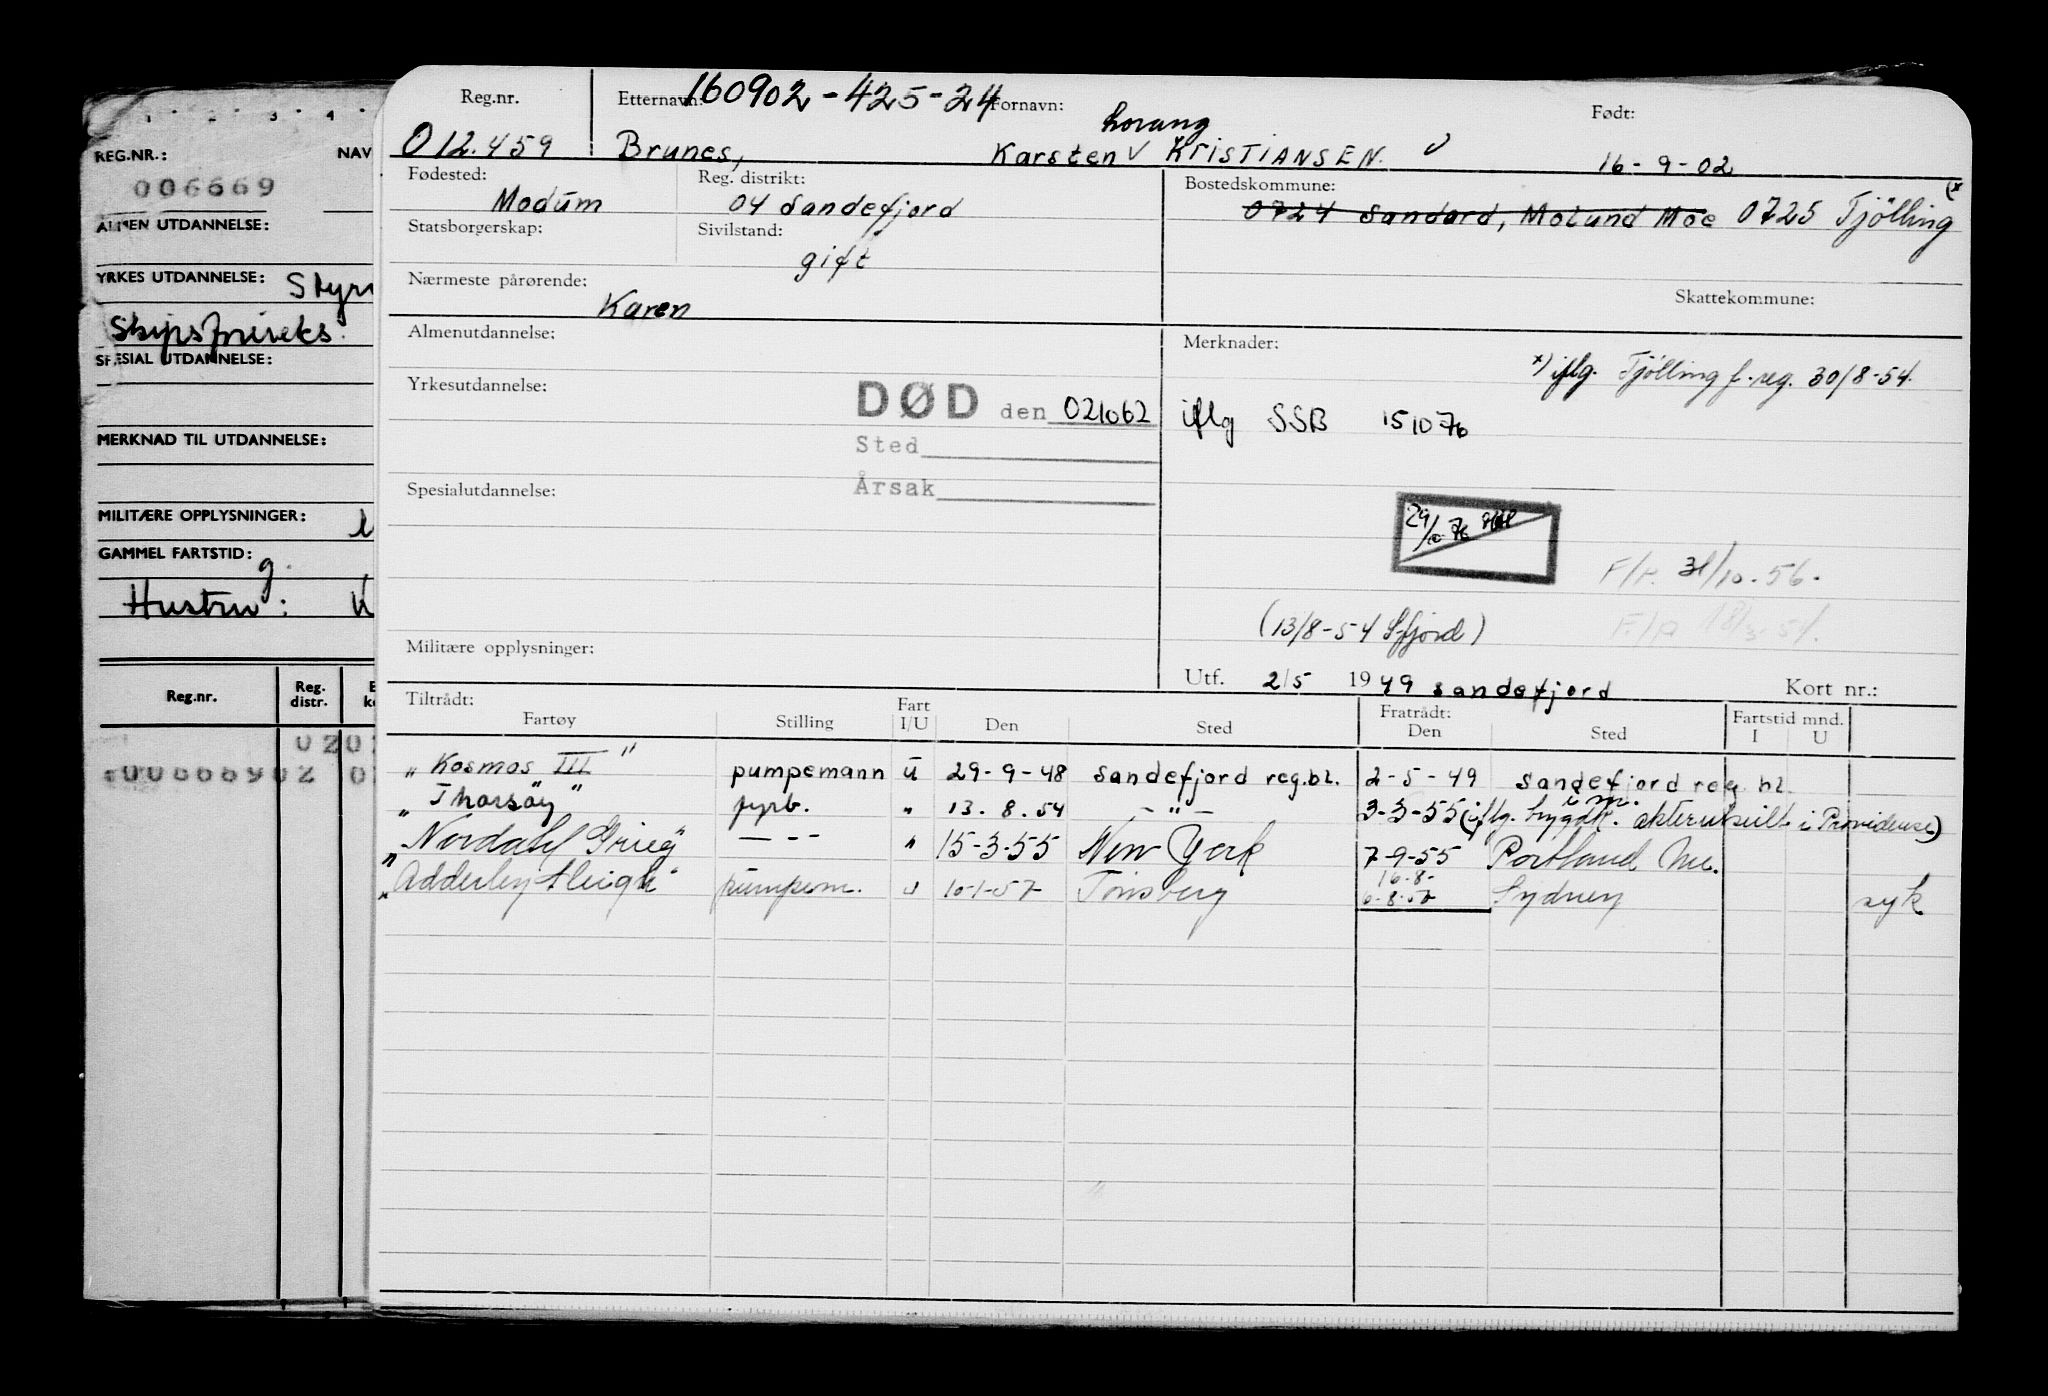 1 2 3 4
REG.NR.: NAV
006669
ALMEN UTDANNELSE:
YRKES UTDANNELSE: Styr
SPESIAL UTDANNELSE:
MERKNAD TIL UTDANNELSE:
MILITÆRE OPPLYSNINGER:
GAMMEL FARTSTID: g.
Hustru: K
Reg.nr. Reg. distr.
Reg.nr. Etternavn: 160902-425-24 Fornavn: Født:
012.459 Brunes, Karsten V KRISTIANSEN. 16-9-02
Fødested: Reg. distrikt: Bostedskommune:
Modum 04 Sandefjord 0724 Sandard, Molund Moe 0725 Tjølling (x
Statsborgerskap: Sivilstand:
gift
Nærmeste pårørende: Skattekommune:
Karen
Almenutdannelse: Merknader:
x) iflg. Tjølling f.reg. 30/8-54.
Yrkesutdannelse:
DØD den 021062 iflg SSB 151076
Sted
Årsak
Spesialutdannelse:
29/10-76
F/P. 31/10-56.
(13/8-54 S.fjord) F/P 18/3-51.
Militære opplysninger:
Utf. 2/5 1949 Sandefjord Kort nr.:
Tiltrådt: Fratrådt:
Fartøy Stilling Fart I/U Den Sted Den Sted Fartstid mnd. I U
"Kosmos III" pumpemann u 29-9-48 Sandefjord reg.bl. 2-5-49 Sandefjord reg. bl.
"Thorsøy" fyrb. " 13.8.54 - " - 3-3-55 (iflg. i Providense)
"Nordahl Grieg" - - - " 15-3-55 New York 7-9-55 Portland Me.
16-8-
"Adderley Sleigh" pumpem. u 10-1-57 Tønsberg 6-8-57 Sydney syk